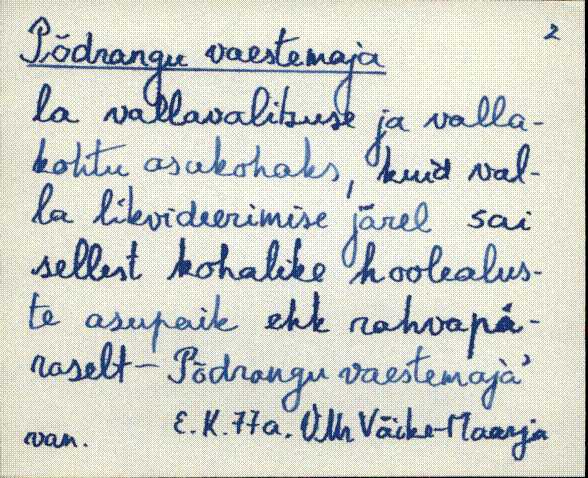 2
Põdrangu vaestemaja
la vallavalitsuse ja valla-
kohtu asukohaks, kuid val-
la likvideerimise järel sai
sellest kohalike hoolealus-
te asupaik ehk rahvapä-
raselt - Põdrangu vaestemaja'
E.K. 77a. Väike-Maarja
van.